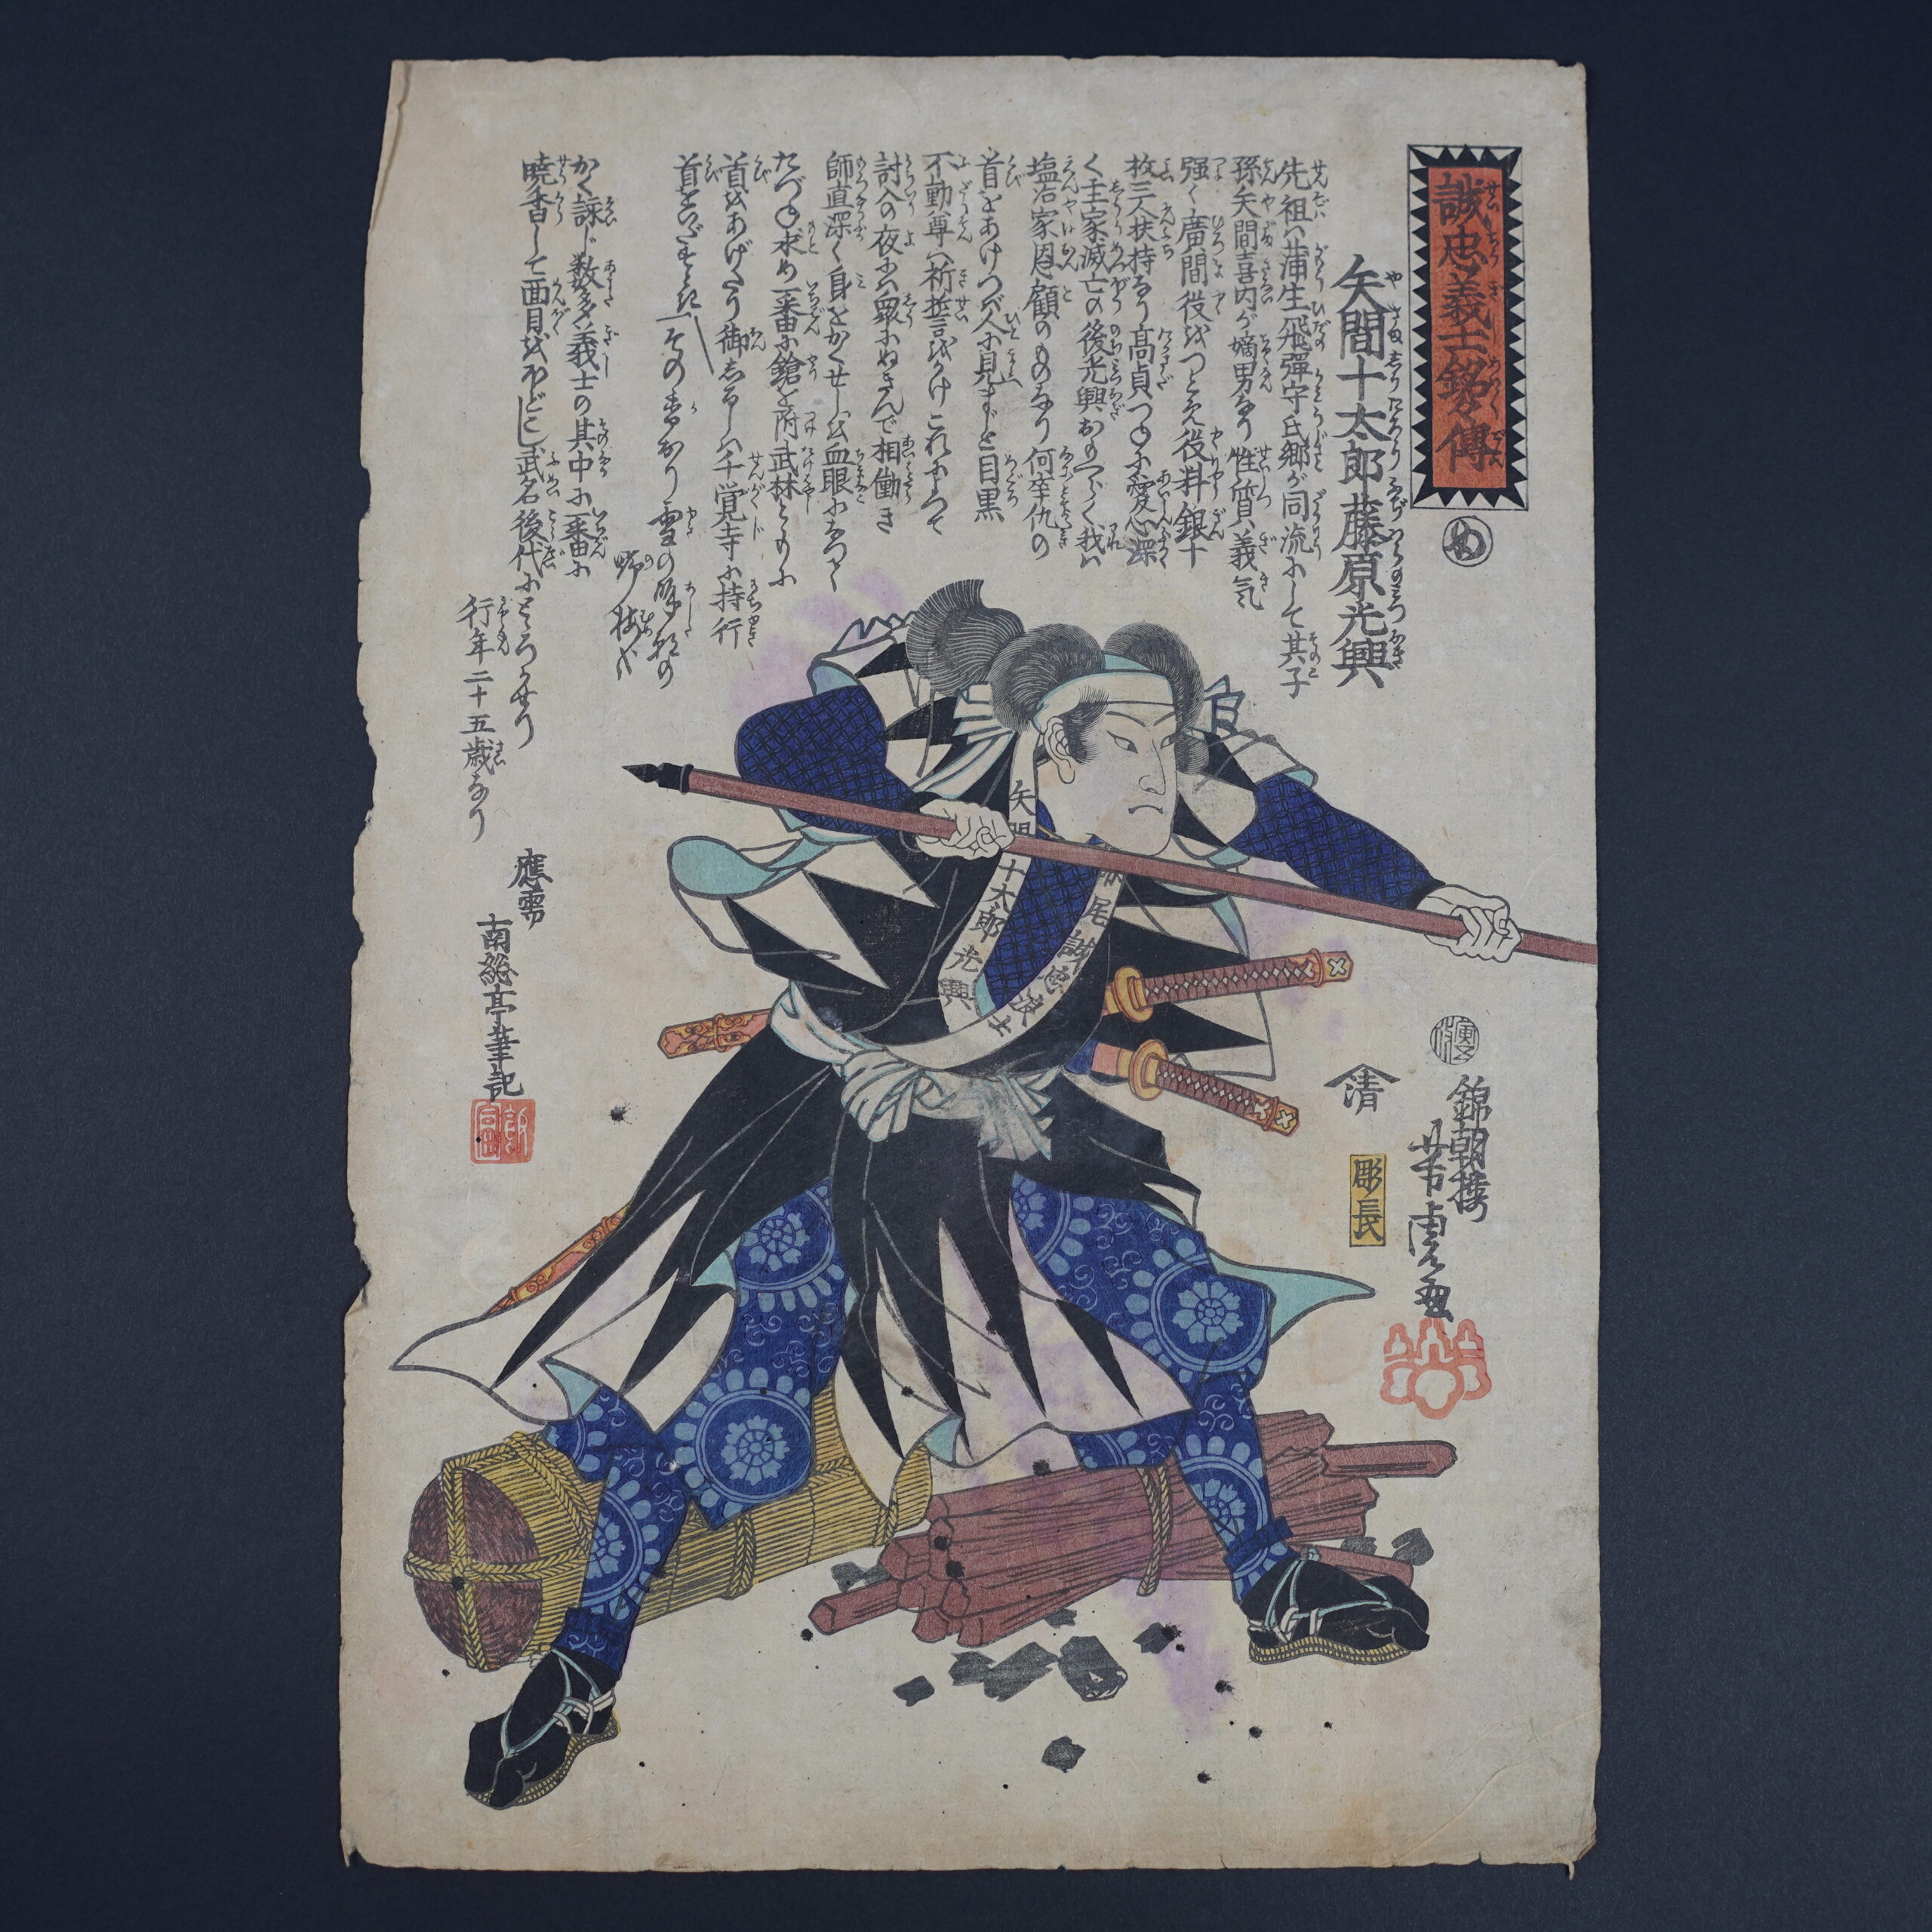 誠忠義士銘々傳
め
矢間十太郎藤原光興
先祖ハ蒲生飛彈守氏郷が同流にして其子
孫矢間喜内が嫡男なり性質義気
强く廣間役をつとめ役料銀十
枚三人扶持なり高貞つねに愛心深
く主家滅亡の後光興おもへらく我ハ
塩冶家恩顧のものなり何卒仇の
首をあげつべ人に見すと目黒
不動尊へ祈誓をかけこれによつて
討入の夜ハ衆にぬきんで相働き
師直深く身をかくせしを血眼になつて
たづね求め一番に鎗を附武林ともに
首をあげたり御志るしハ千覚寺に持行
首をいだすとき
「その香おり雪の
野梅哉
かく詠じ数多義士の其中に一番に
焼香して面目をほどこし武名後代に
とゞろかせり
行年二十五歳なり
應需
南総亭筆記
錦朝楼
芳虎画
清
彫長
矢間十太郎光興
尾誠忠
士